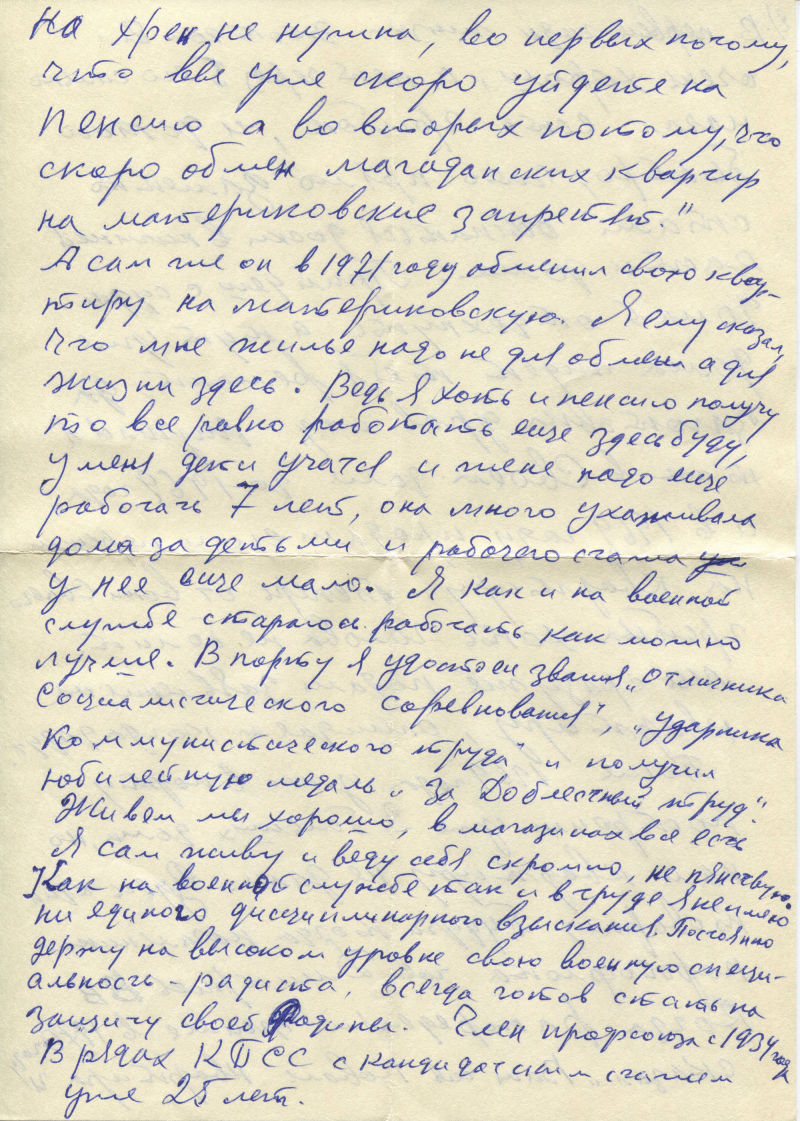 на хрен не нужна, во первых потому,
что вы уже скоро уйдете на
пенсию а во вторых потому, что
скоро обмен магаданских квартир
на материковские запретят."
А сам же он в 1971 году обменил свою квар-
тиру на материковскую. Я ему сказал,
что мне жилье надо не для обмена а для
жизни здесь. Ведь я хоть и пенсию получу
то все равно работать еще здесь буду,
у меня дети учатся и жене надо еще
работать 7 лет, она много ухаживала
дома за детьми и рабочего стажа
у нее еще мало. Я как и на военной
службе стараюсь работать как можно
лучше. В порту я удостоен звания „Отличника
социалистического соревнования", „Ударника
Коммунистического труда" и получил
юбилейную медаль „За Доблестный труд".
Живем мы хорошо, в магазинах все есть
Я сам живу и веду себя скромно, не пянствую.
Как на военной службе так и в труде я не имею
ни единого дисциплинарного взыскания. Постоянно
держу на высоком уровне свою военную специ-
альность - радиста, всегда готов стать на
защиту своей Родины. Член профсоюза с 1934 года
В рядах КПСС с кандидатским стажем
уже 25 лет.